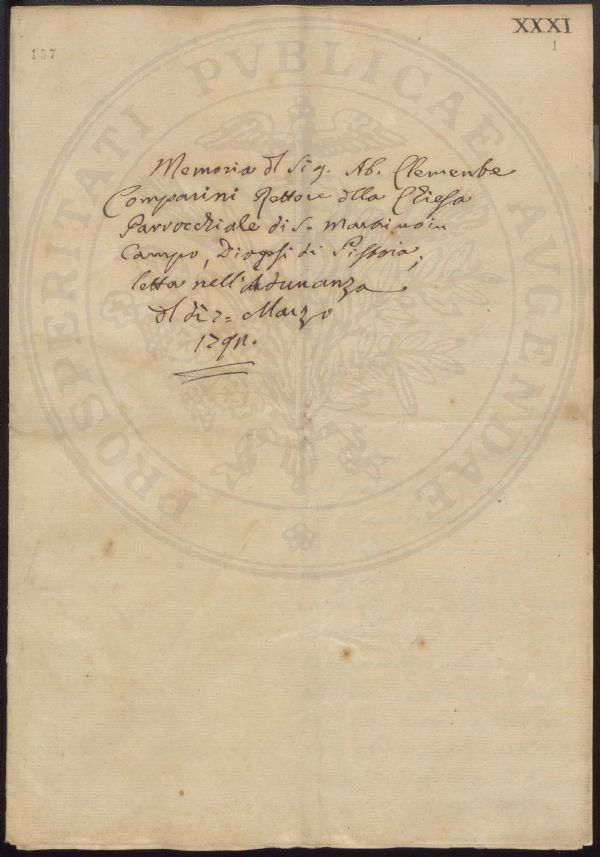 XXXI
1
157
PROSPERITATI PVBLICAE AVGENDAE
Memoria dl Sig. Ab. Clemente
Comparini Rettore dlla Chiesa
Parrocchiale di S. Martino in
Campo, Diogesi di Pistoia,
letta nell'adunanza
dl dì 2= Marzo
1791.